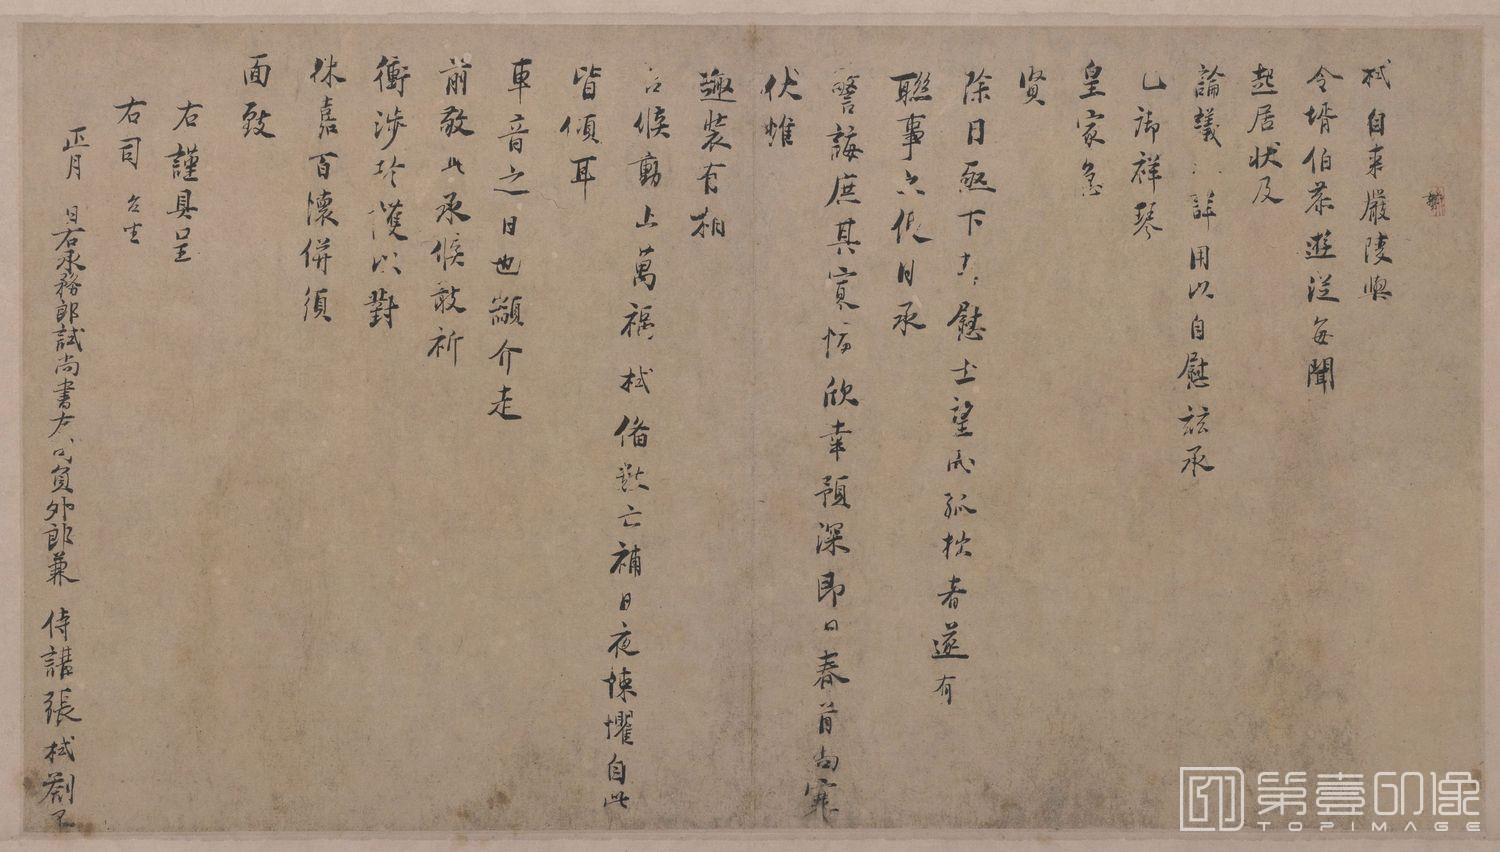 栻自來嚴陵與
令壻伯恭遊從每聞
起居狀及
論議 詳用以自慰茲承
已御祥琴
皇家急
賢
除日亟下 慰士望而孤拙者遂有
聯事 日承
警誨庶其寡 欣幸預深即日春首尚寒
伏惟
趣裝有相
台候動止萬福栻備數亡補日夜悚懼自此
皆傾耳
車音之日也顓介走
前敬此承候敢祈
衝涉珍護以對
休嘉百懷併須
面致
右謹具呈
右司 台坐
正月 日右承務郎試尚書左司員外郎兼 侍講張栻劄子
第壹印像
TOPIMAGE